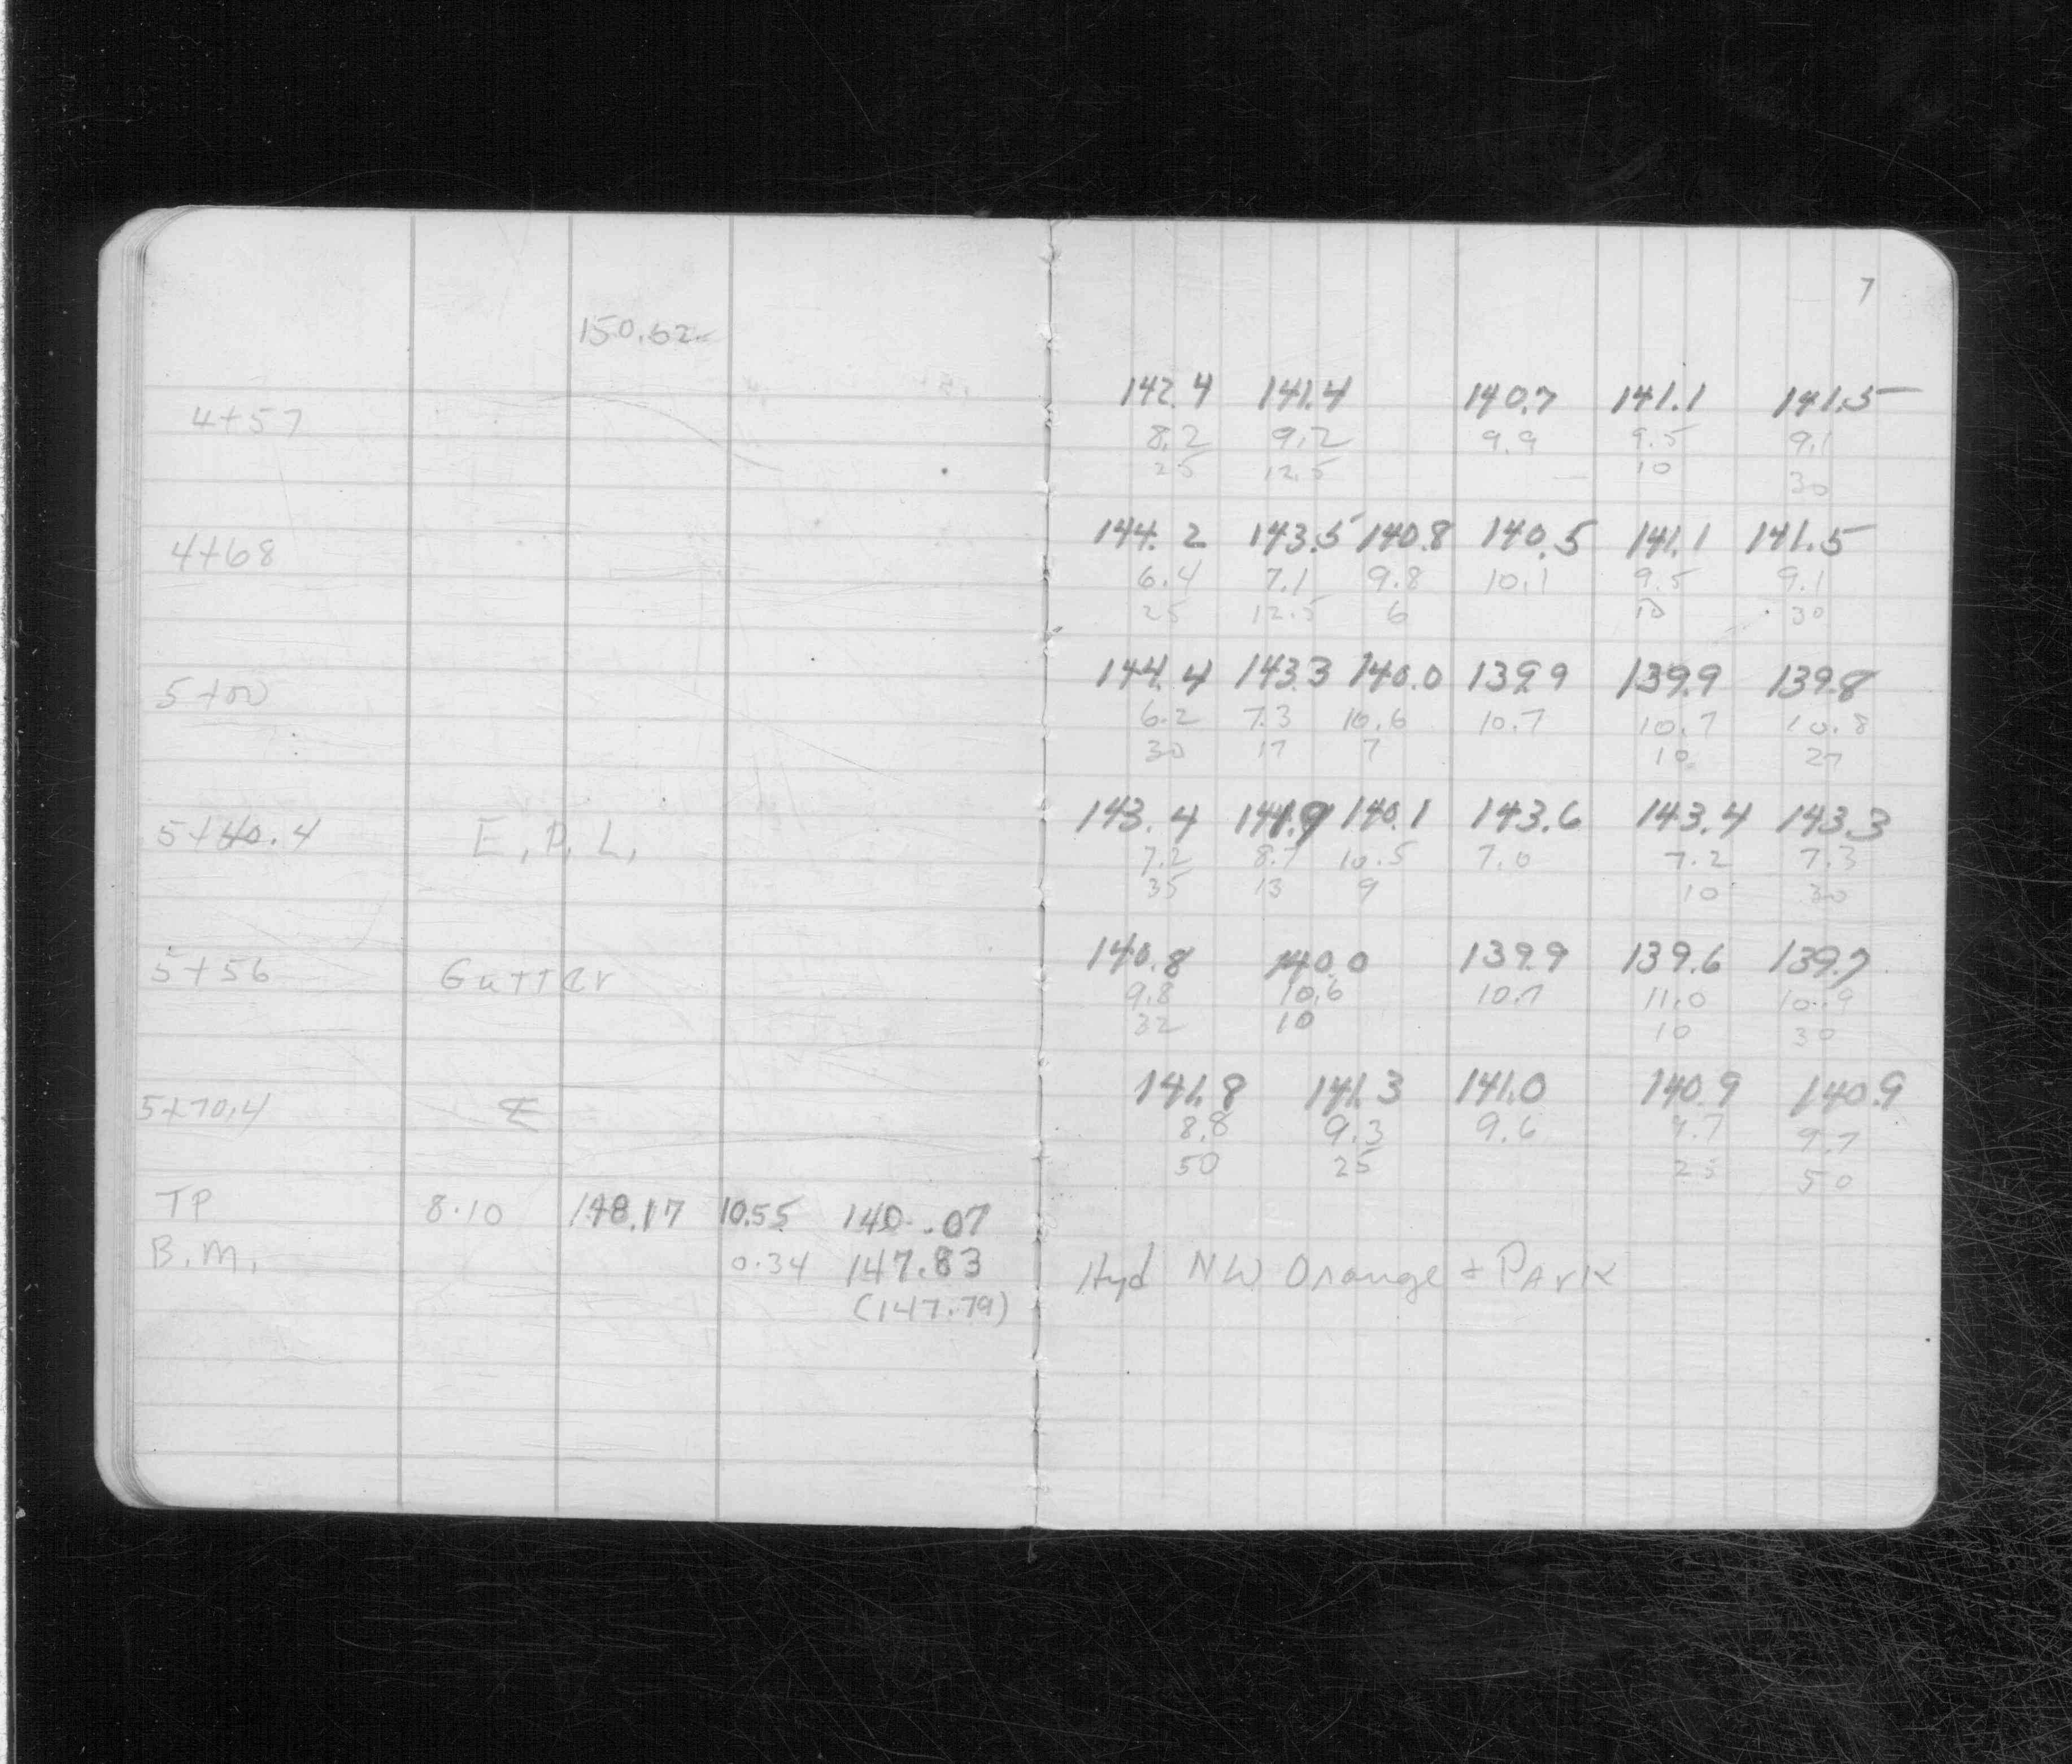 7
150.62
142.4 141.4 140.7 141.1 141.5
4+57 8.2 9.2 9.9 9.5 9.1
25 12.5 10 30
144.2 143.5 140.8 140.5 141.1 141.5
4+68 6.4 7.1 9.8 10.1 9.5 9.1
25 12.5 6 10 30
144.4 143.3 140.0 139.9 139.9 139.8
5+00 6.2 7.3 10.6 10.7 10.7 10.8
30 17 7 10 27
143.4 141.9 140.1 143.6 143.4 143.3
5+40.4 E.P.L. 7.2 8.7 10.5 7.0 7.2 7.3
35 13 9 10 30
140.8 140.0 139.9 139.6 139.7
5+56 Gutter 9.8 10.6 10.7 11.0 10.9
32 10 10 30
141.8 141.3 141.0 140.9 140.9
5+70.4 ℄ 8.8 9.3 9.6 9.7 9.7
50 25 25 50
TP 8.10 148.17 10.55 140.07
B.M. 0.34 147.83 Hyd NW Orange + Park
(147.79)